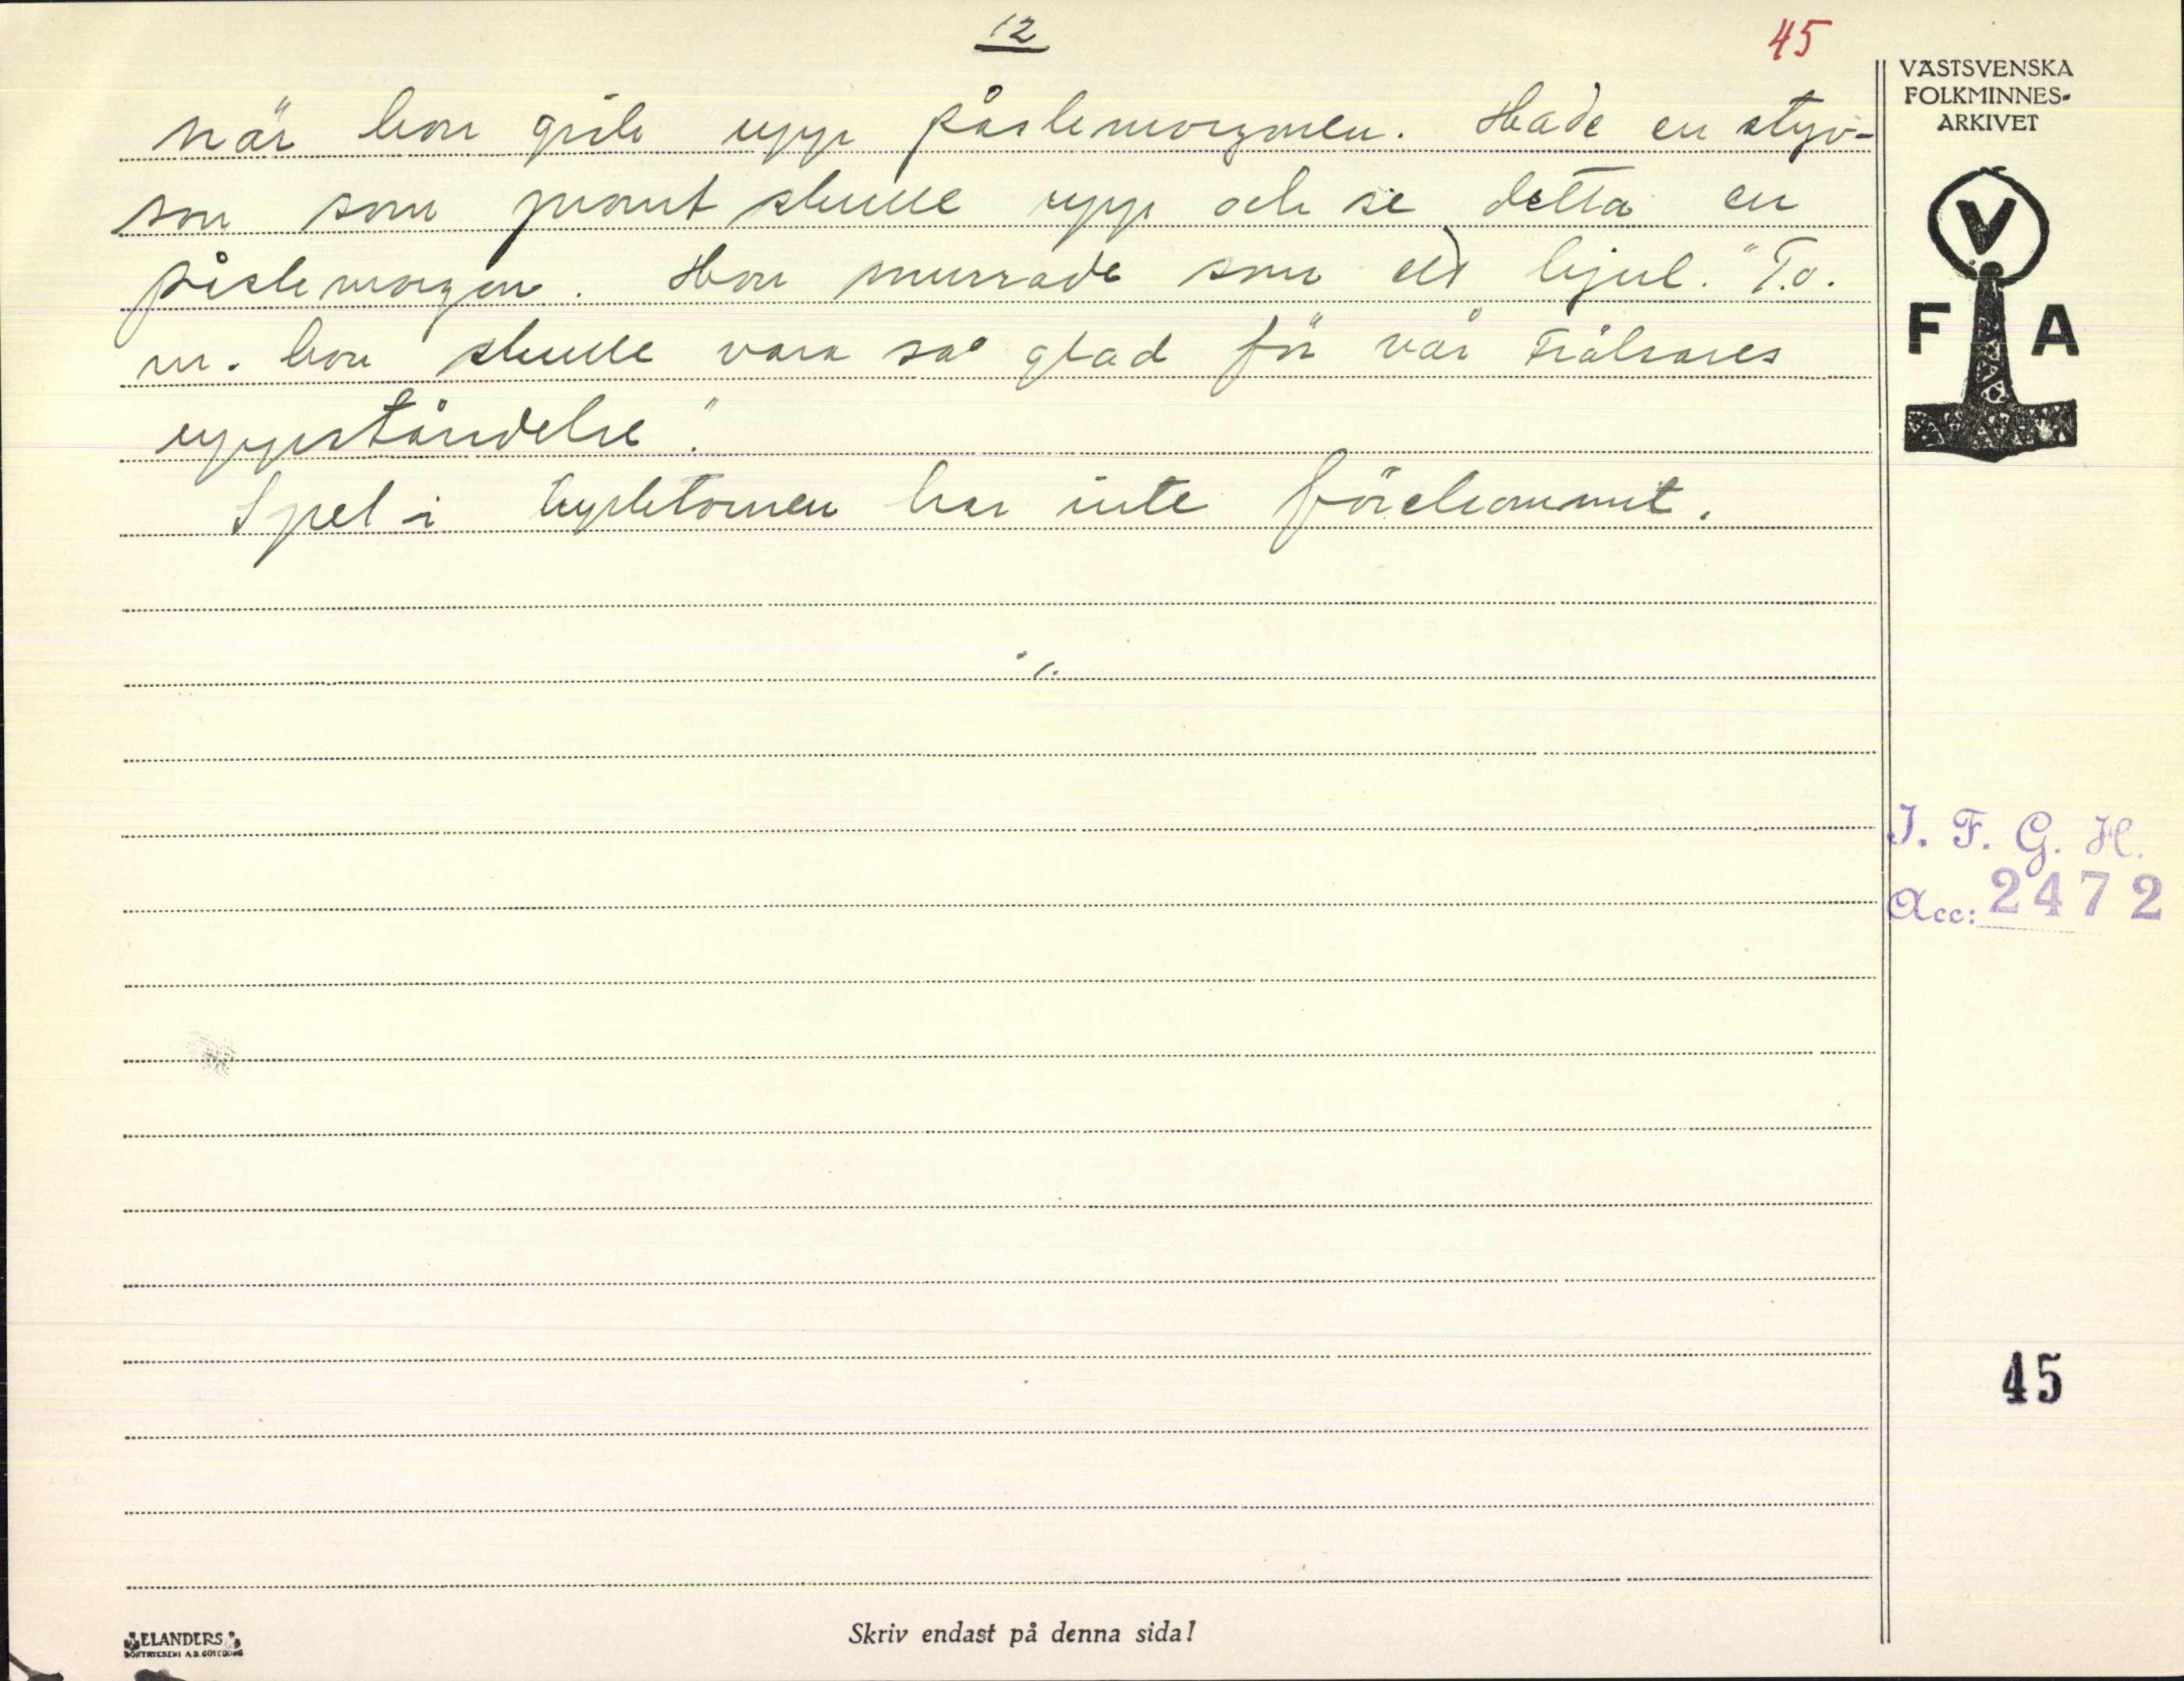 12
45
VÄSTSVENSKA
FOLKMINNES-
ARKIVET
när hon gick upp påskemorgonen. Hade en styv-
son som promt skulle upp och se detta en
påskemorgon. Hon snurrade som ett hjul. "T.o.
m. hon skulle vara så glad för vår Frälsares
uppståndelse".
Spel i kyrktornen har inte förekommit.
V
F A
I. F. G. H.
Acc: 2472
45
ELANDERS
BOKTRYCKERI A.B. GÖTEBORG
Skriv endast på denna sida!